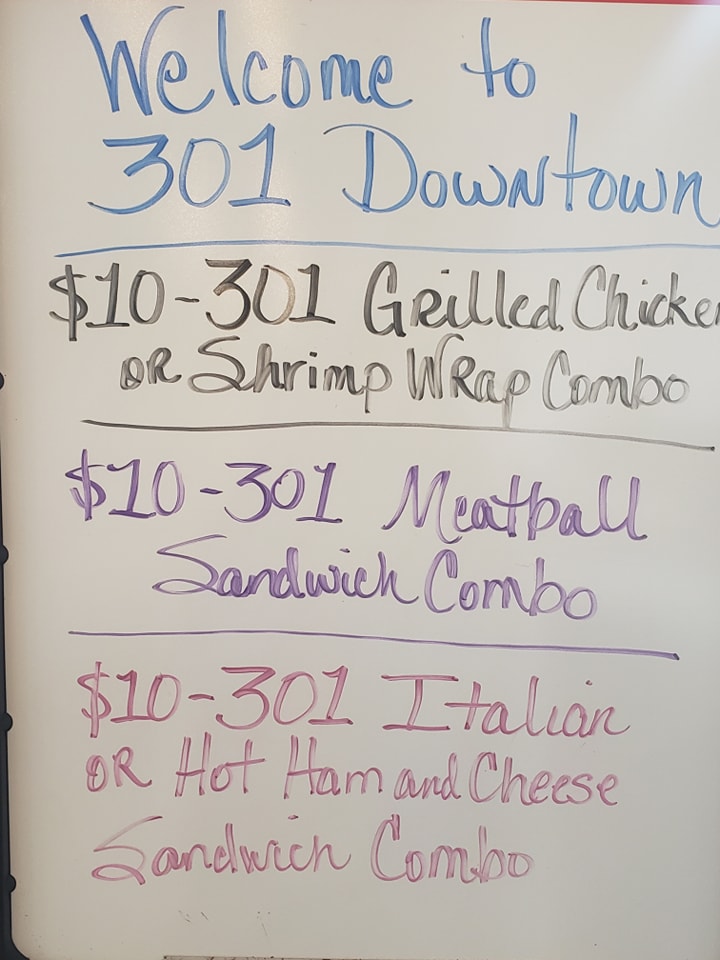 Welcome to
301 Downtown
$10-301 Grilled Chicken
OR Shrimp Wrap Combo
$10-301 Meatball
Sandwich Combo
$10-301 Italian
OR Hot Ham and Cheese
Sandwich Combo